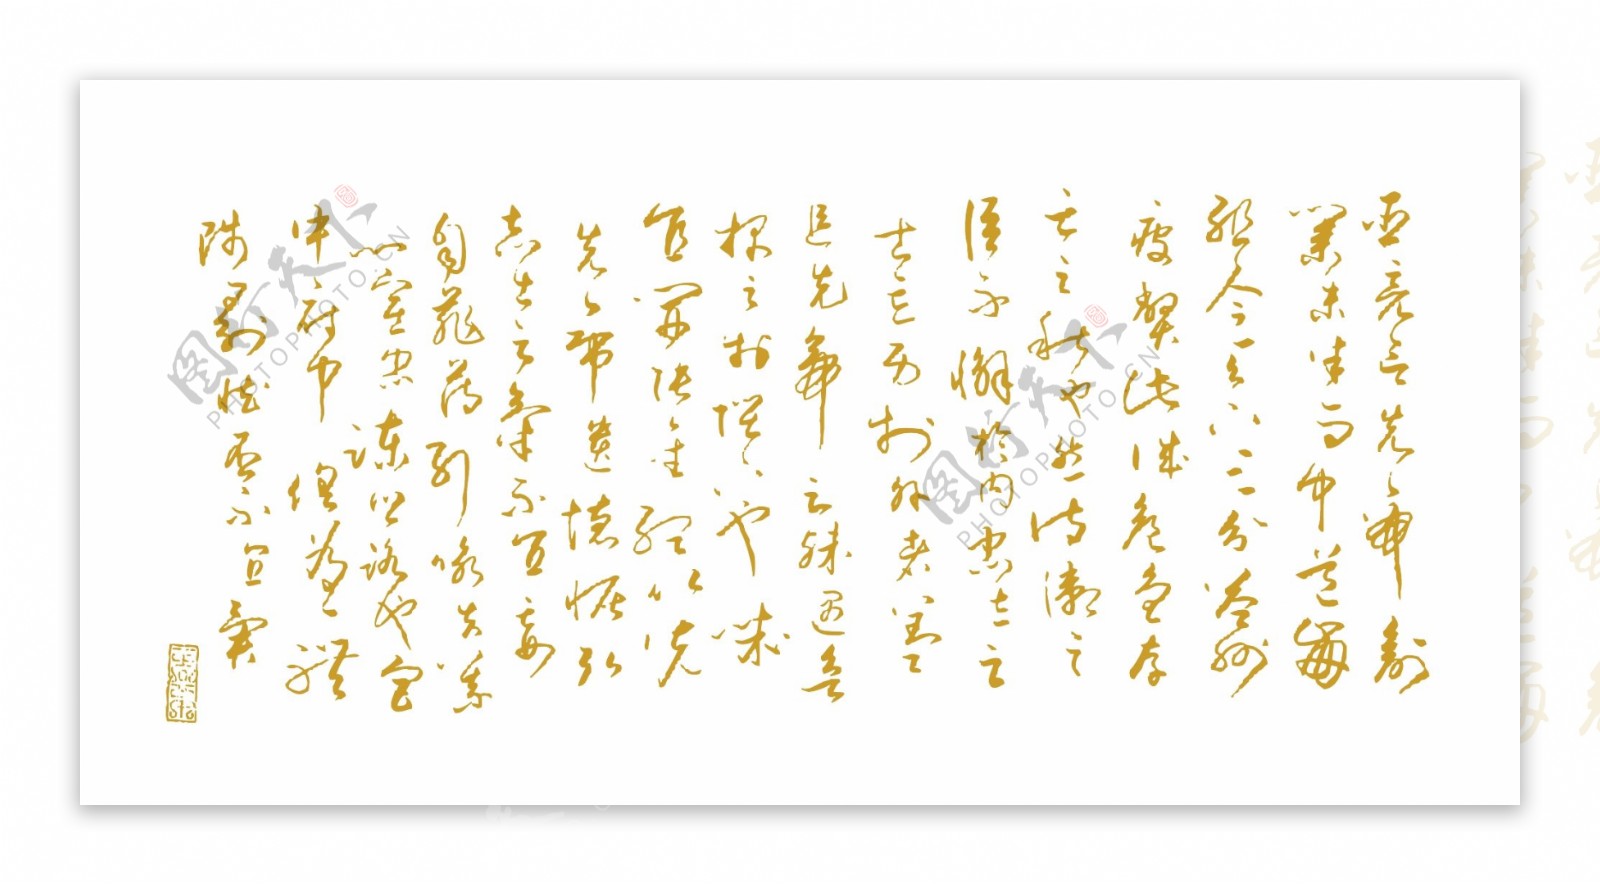 臣亮言先帝創
業未半而中道崩
殂今天下三分益州
疲弊此誠危急存
亡之秋也然侍衛之
臣不懈於内忠志之
士亡身於外者蓋
追先帝之殊遇欲
報之於陛下也誠
宜開張聖聽以光
先帝遺德恢弘
志士之氣不宜妄
自菲薄引喻失義
以塞忠諫之路也宮
中府中俱為一體
陟罰臧否不宜異
图行天下
PHOTOPHOTO.CN
图行天下
PHOTOPHOTO.CN